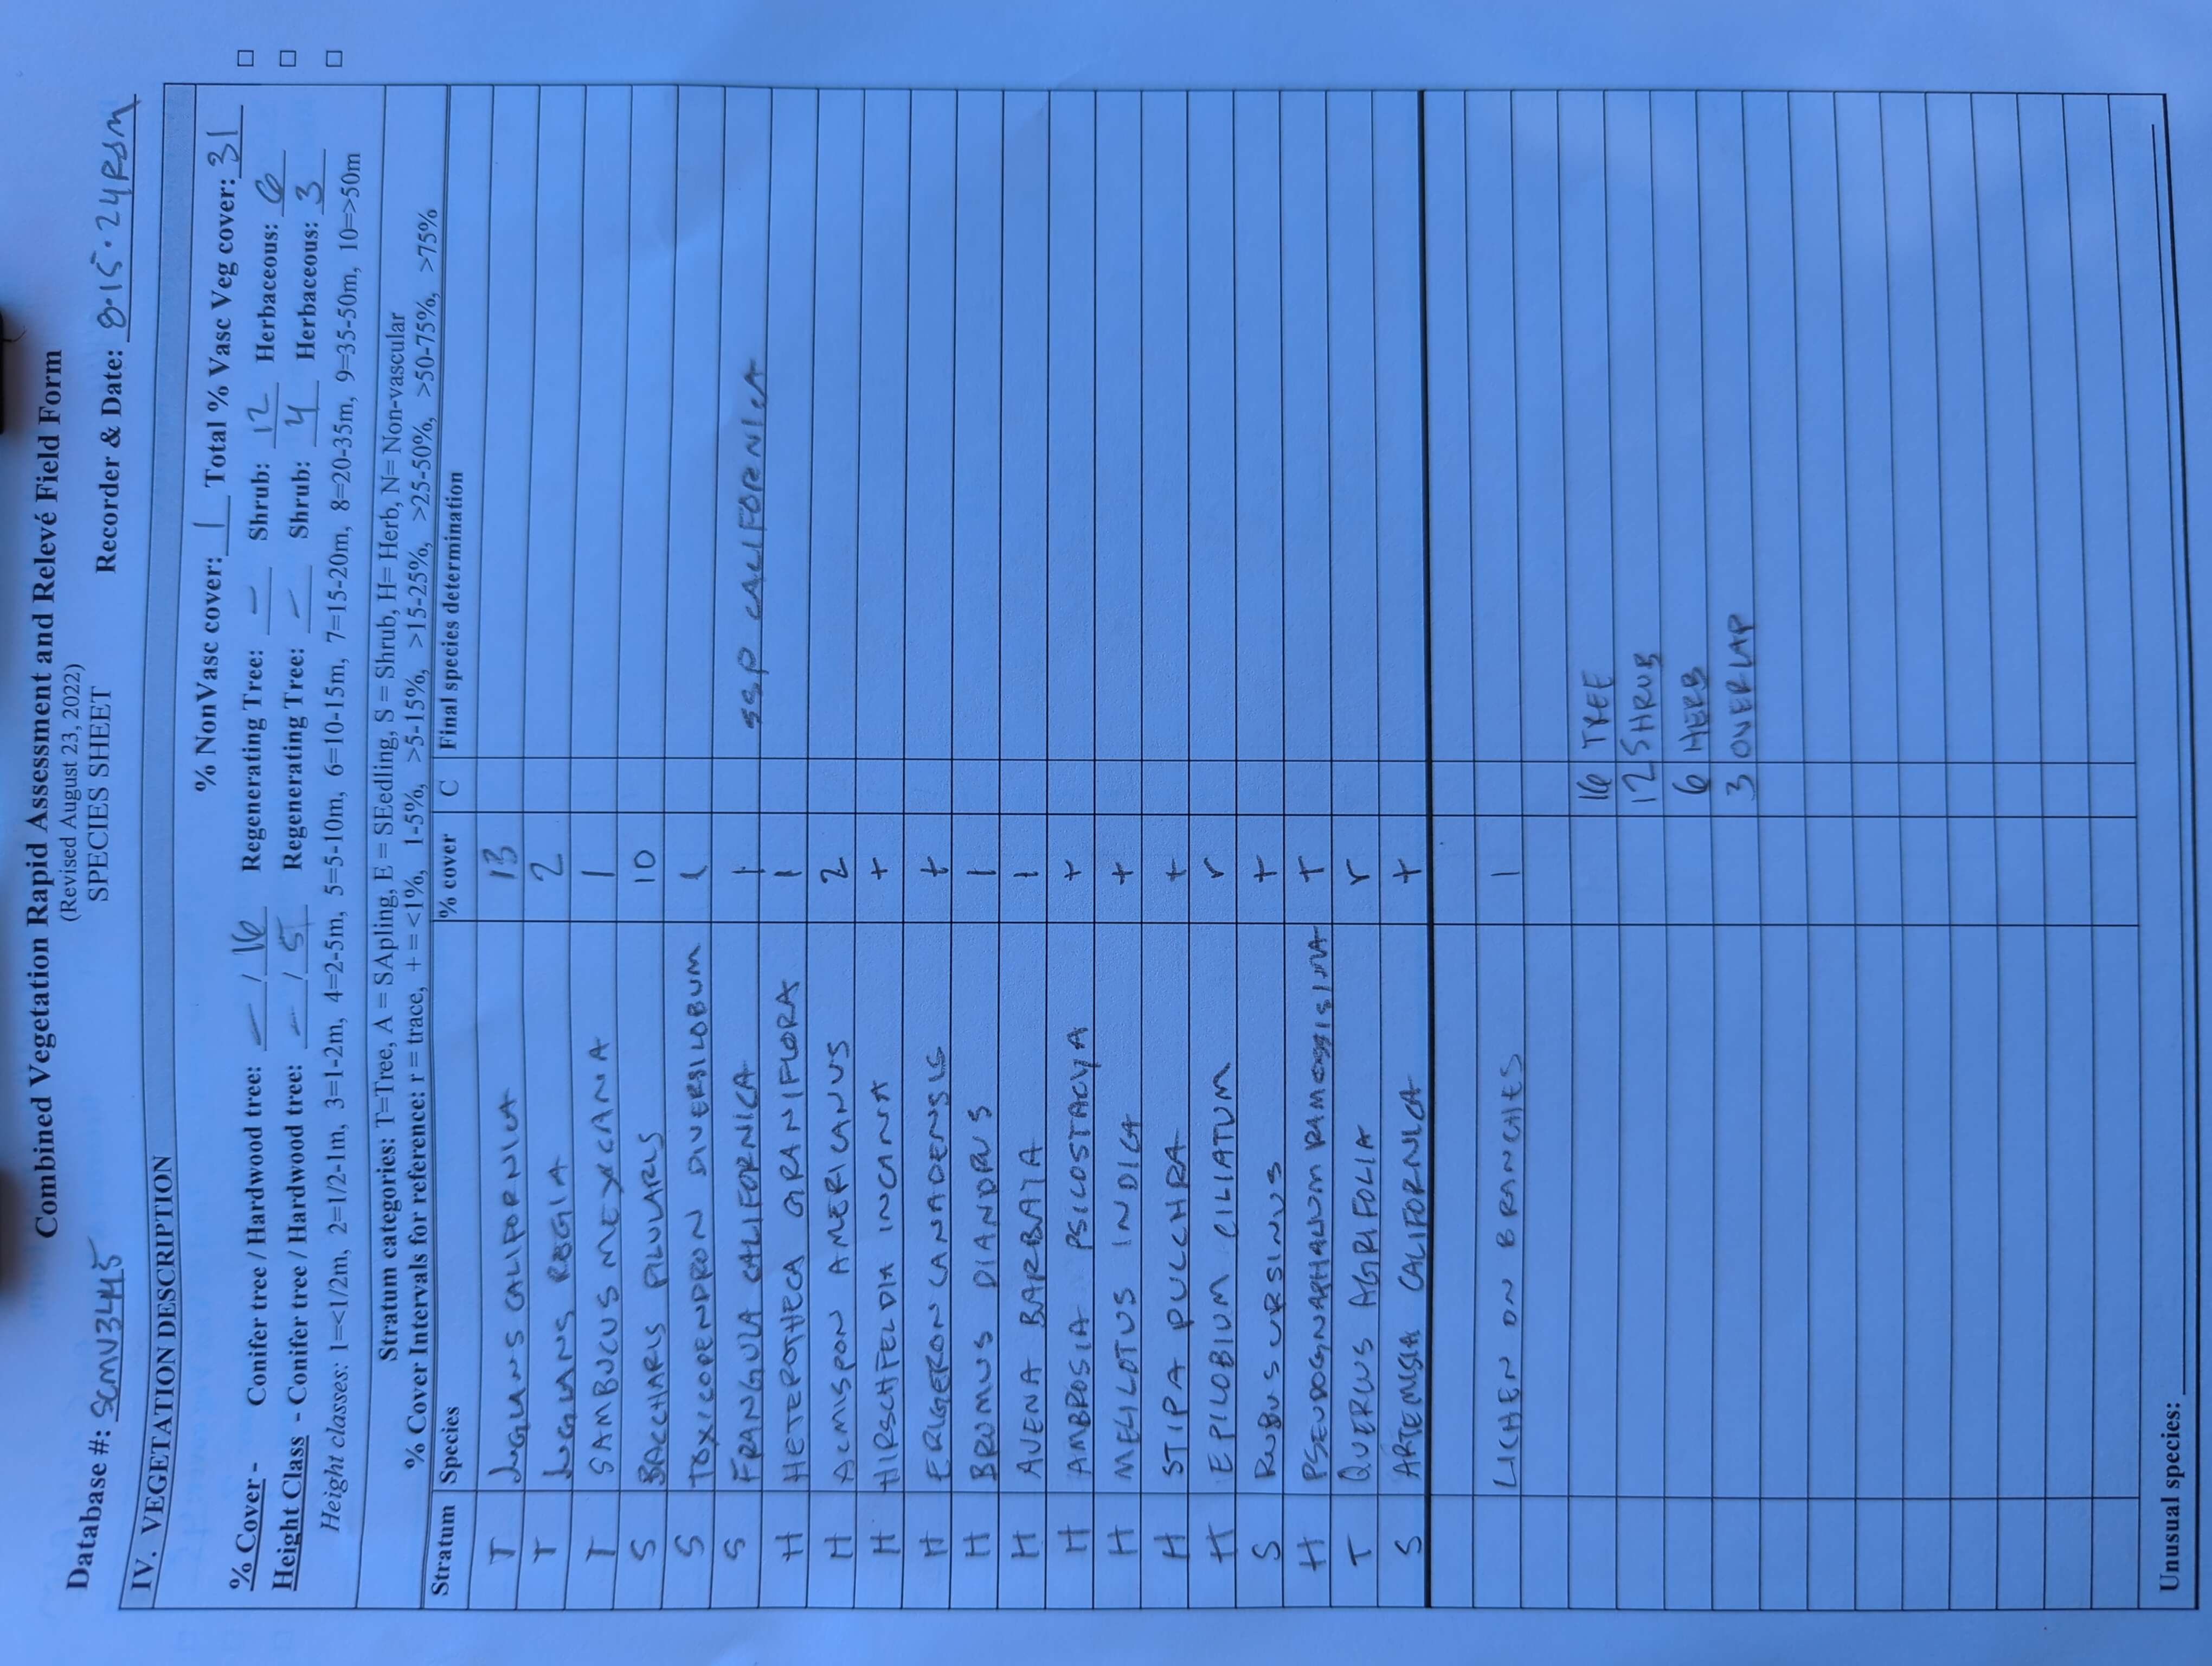 Combined Vegetation Rapid Assessment and Relevé Field Form
(Revised August 23, 2022)
SPECIES SHEET
Database #: SCMV3445 Recorder & Date: 8·15·24 RSM
IV. VEGETATION DESCRIPTION
% NonVasc cover: 1 Total % Vasc Veg cover: 31
% Cover - Conifer tree / Hardwood tree: — / 16 Regenerating Tree: — Shrub: 12 Herbaceous: 6
Height Class - Conifer tree / Hardwood tree: — / 5 Regenerating Tree: — Shrub: 4 Herbaceous: 3
Height classes: 1=<1/2m, 2=1/2-1m, 3=1-2m, 4=2-5m, 5=5-10m, 6=10-15m, 7=15-20m, 8=20-35m, 9=35-50m, 10=>50m
Stratum categories: T=Tree, A = SApling, E = SEedling, S = Shrub, H= Herb, N= Non-vascular
% Cover Intervals for reference: r = trace, + = <1%, 1-5%, >5-15%, >15-25%, >25-50%, >50-75%, >75%
Stratum Species % cover C Final species determination
T JUGLANS CALIFORNICA 13
T JUGLANS REGIA 2
T SAMBUCUS MEXICANA 1
S BACCHARIS PILULARIS 10
S TOXICODENDRON DIVERSILOBUM 1
S FRANGULA CALIFORNICA 1 SSP CALIFORNICA
H HETEROTHECA GRANIFLORA 1
H ACMISPON AMERICANUS 2
H HIRSCHFELDIA INCANA +
H ERIGERON CANADENSIS +
H BROMUS DIANDRUS 1
H AVENA BARBATA 1
H AMBROSIA PSILOSTACYA +
H MELILOTUS INDICA +
H STIPA PULCHRA +
H EPILOBIUM CILIATUM r
S RUBUS URSINUS +
H +
T QUERCUS AGRIFOLIA r
S ARTEMISIA CALIFORNICA +
LICHEN ON BRANCHES 1
16 TREE
12 SHRUB
6 HERB
3 OVERLAP
Unusual species: